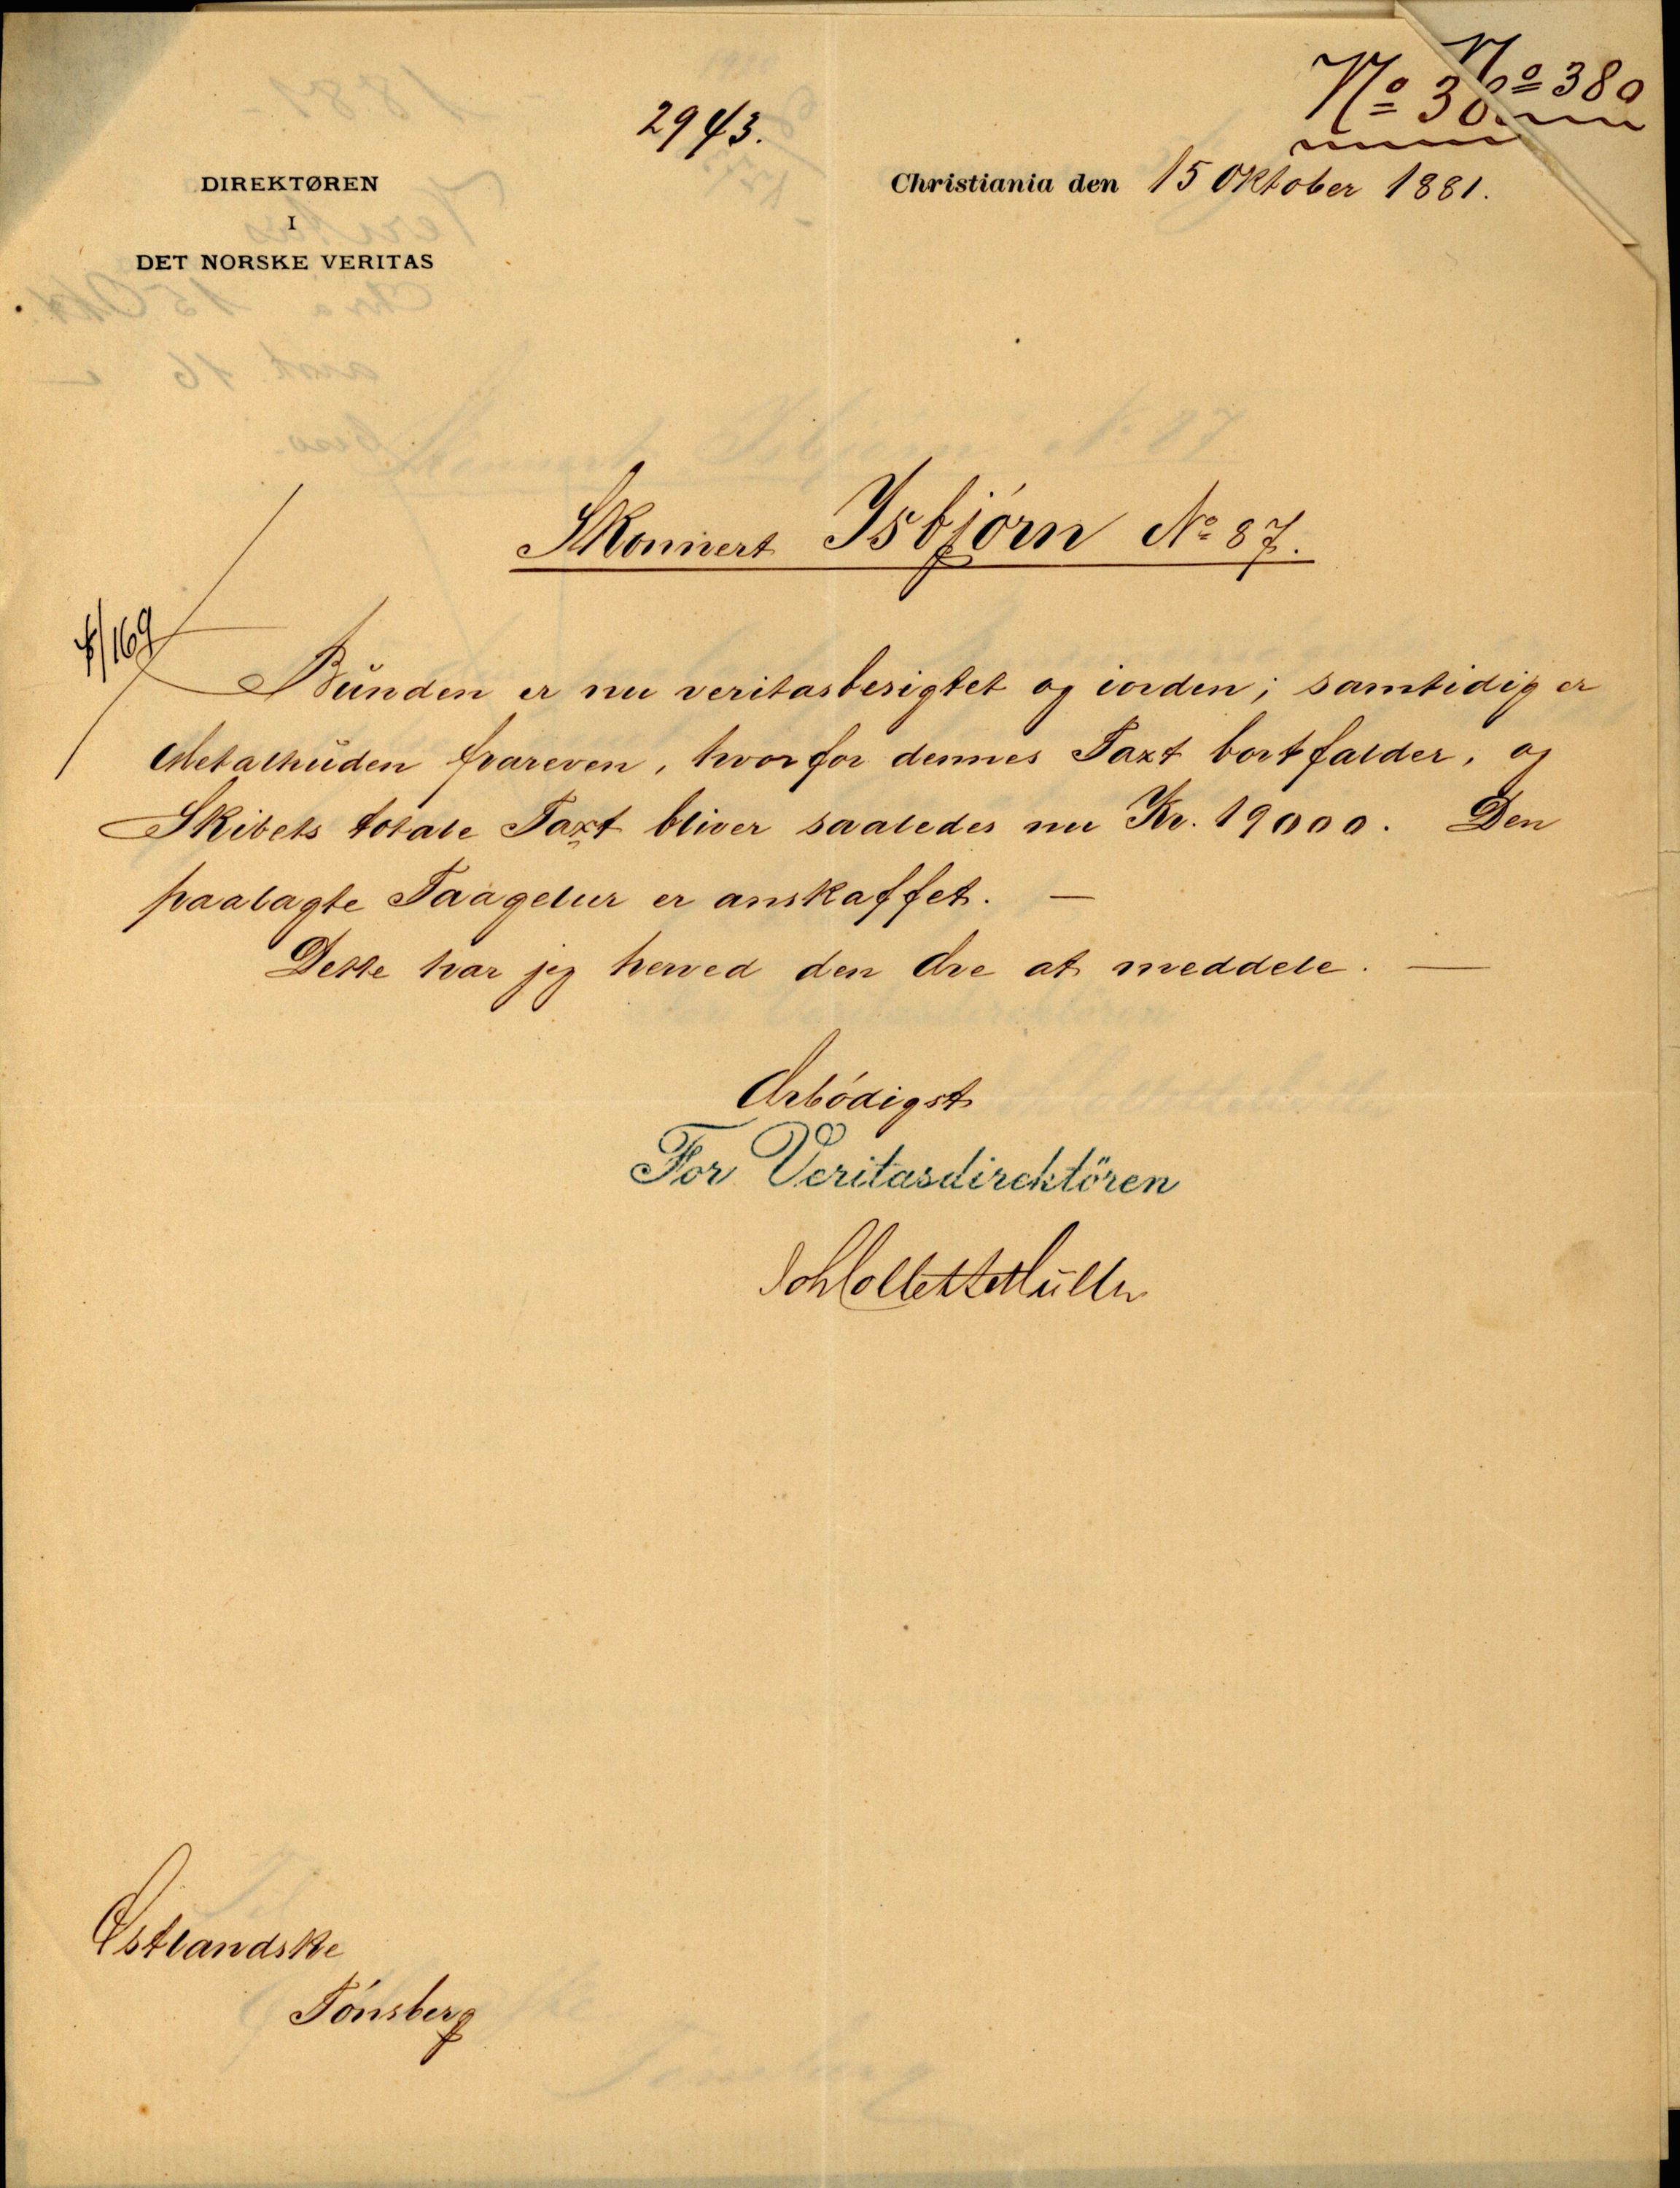 2943.
Nº 380
Nº 38
DIREKTØREN
I
DET NORSKE VERITAS
Christiania den 15 Oktober 1881.
Skonnert Isbjørn Nº 87.
/169
Bunden er nu veritasbesigtet og iorden; samtidig er
Metalhuden frareven, hvorfor dennes Taxt bortfalder, og
Skibets totale Taxt bliver saaledes nu Kr. 19000. Den
paalagte Taagelur er anskaffet. —
Dette har jeg herved den Ære at meddele. —
Ærbødigst
For Veritasdirektören
Joh Collett Müller
Østlandske
Tönsberg